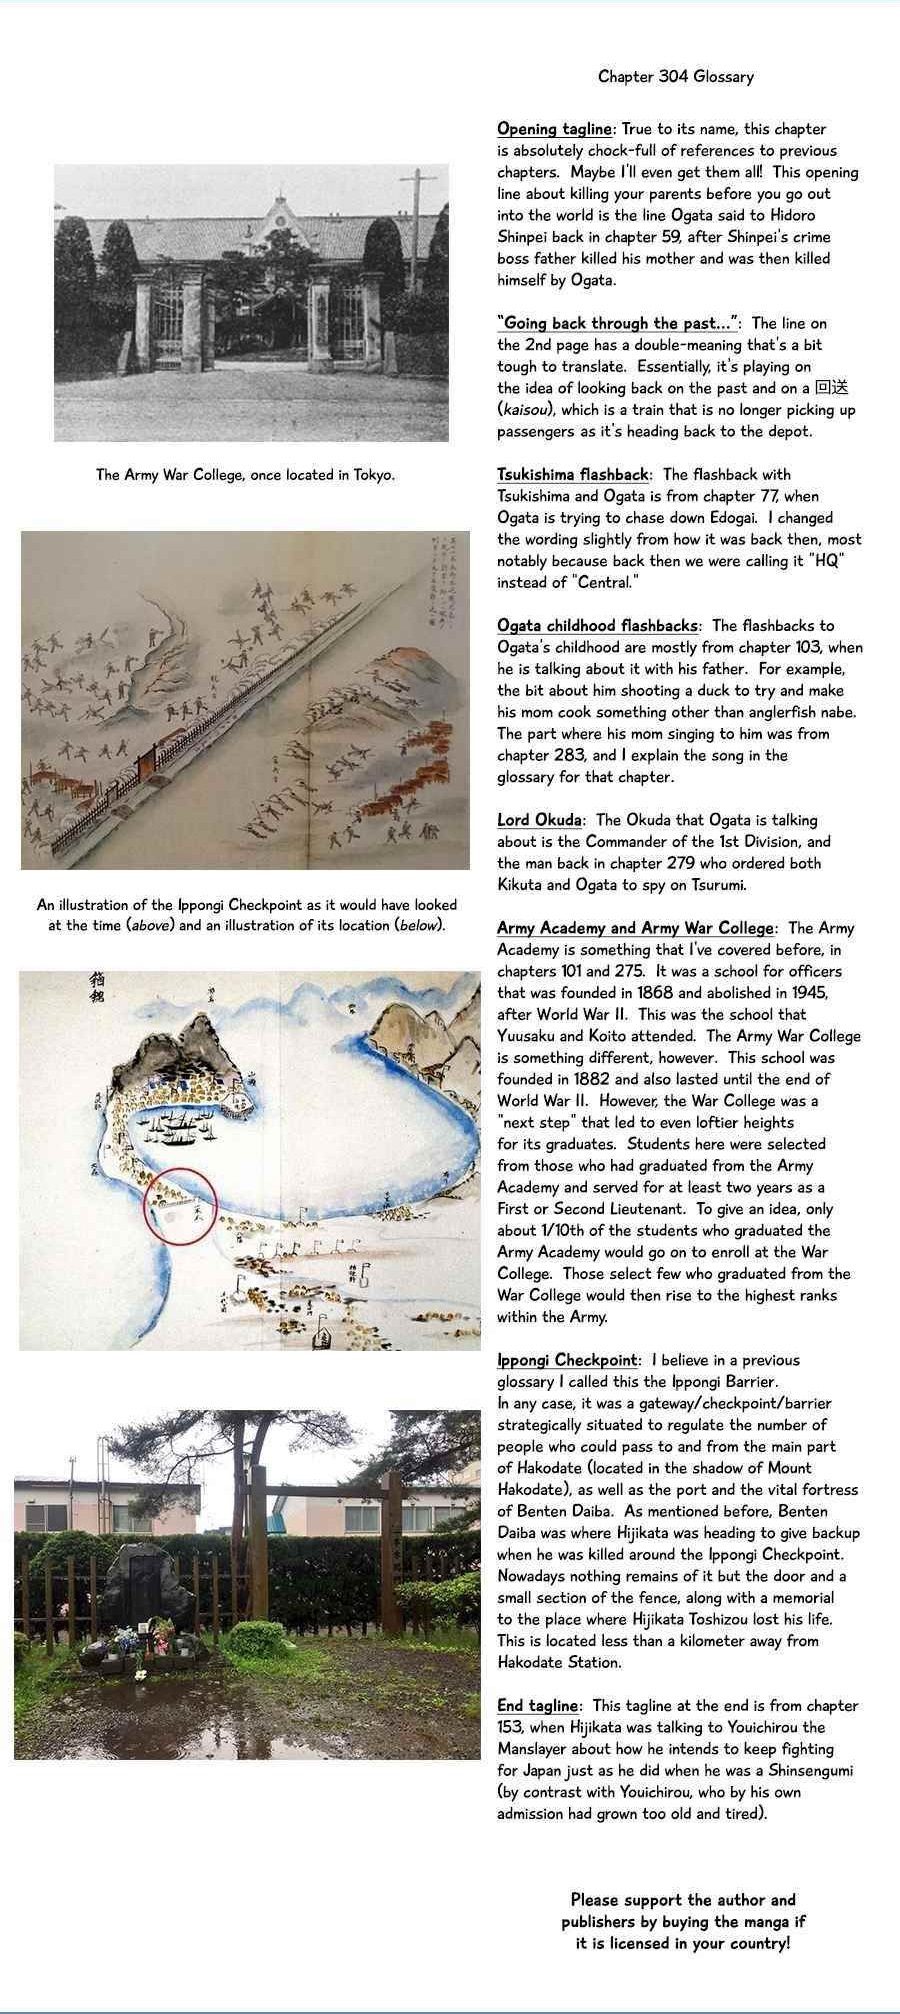 Chapter 304 Glossary
Opening tagline: True to its name, this chapter
is absolutely chock-full of references to previous
chapters. Maybe I'll even get them all! This opening
line about killing your parents before you go out
into the world is the line Ogata said to Hidoro
Shinpei back in chapter 59, after Shinpei's crime
boss father killed his mother and was then killed
himself by Ogata.
"Going back through the past...": The line on
the 2nd page has a double-meaning that's a bit
tough to translate. Essentially, it's playing on
the idea of looking back on the past and on a 回送
(kaisou), which is a train that is no longer picking up
passengers as it's heading back to the depot.
Tsukishima flashback: The flashback with
Tsukishima and Ogata is from chapter 77, when
Ogata is trying to chase down Edogai. I changed
the wording slightly from how it was back then, most
notably because back then we were calling it "HQ"
instead of "Central."
Ogata childhood flashbacks: The flashbacks to
Ogata's childhood are mostly from chapter 103, when
he is talking about it with his father. For example,
the bit about him shooting a duck to try and make
his mom cook something other than anglerfish nabe.
The part where his mom singing to him was from
chapter 283, and I explain the song in the
glossary for that chapter.
Lord Okuda: The Okuda that Ogata is talking
about is the Commander of the 1st Division, and
the man back in chapter 279 who ordered both
Kikuta and Ogata to spy on Tsurumi.
Army Academy and Army War College: The Army
Academy is something that I've covered before, in
chapters 101 and 275. It was a school for officers
that was founded in 1868 and abolished in 1945,
after World War II. This was the school that
Yuusaku and Koito attended. The Army War College
is something different, however. This school was
founded in 1882 and also lasted until the end of
World War II. However, the War College was a
"next step" that led to even loftier heights
for its graduates. Students here were selected
from those who had graduated from the Army
Academy and served for at least two years as a
First or Second Lieutenant. To give an idea, only
about 1/10th of the students who graduated the
Army Academy would go on to enroll at the War
College. Those select few who graduated from the
War College would then rise to the highest ranks
within the Army.
Ippongi Checkpoint: I believe in a previous
glossary I called this the Ippongi Barrier.
In any case, it was a gateway/checkpoint/barrier
strategically situated to regulate the number of
people who could pass to and from the main part
of Hakodate (located in the shadow of Mount
Hakodate), as well as the port and the vital fortress
of Benten Daiba. As mentioned before, Benten
Daiba was where Hijikata was heading to give backup
when he was killed around the Ippongi Checkpoint.
Nowadays nothing remains of it but the door and a
small section of the fence, along with a memorial
to the place where Hijikata Toshizou lost his life.
This is located less than a kilometer away from
Hakodate Station.
End tagline: This tagline at the end is from chapter
153, when Hijikata was talking to Youichirou the
Manslayer about how he intends to keep fighting
for Japan just as he did when he was a Shinsengumi
(by contrast with Youichirou, who by his own
admission had grown too old and tired).
Please support the author and
publishers by buying the manga if
it is licensed in your country!
The Army War College, once located in Tokyo.
An illustration of the Ippongi Checkpoint as it would have looked
at the time (above) and an illustration of its location (below).
箱館